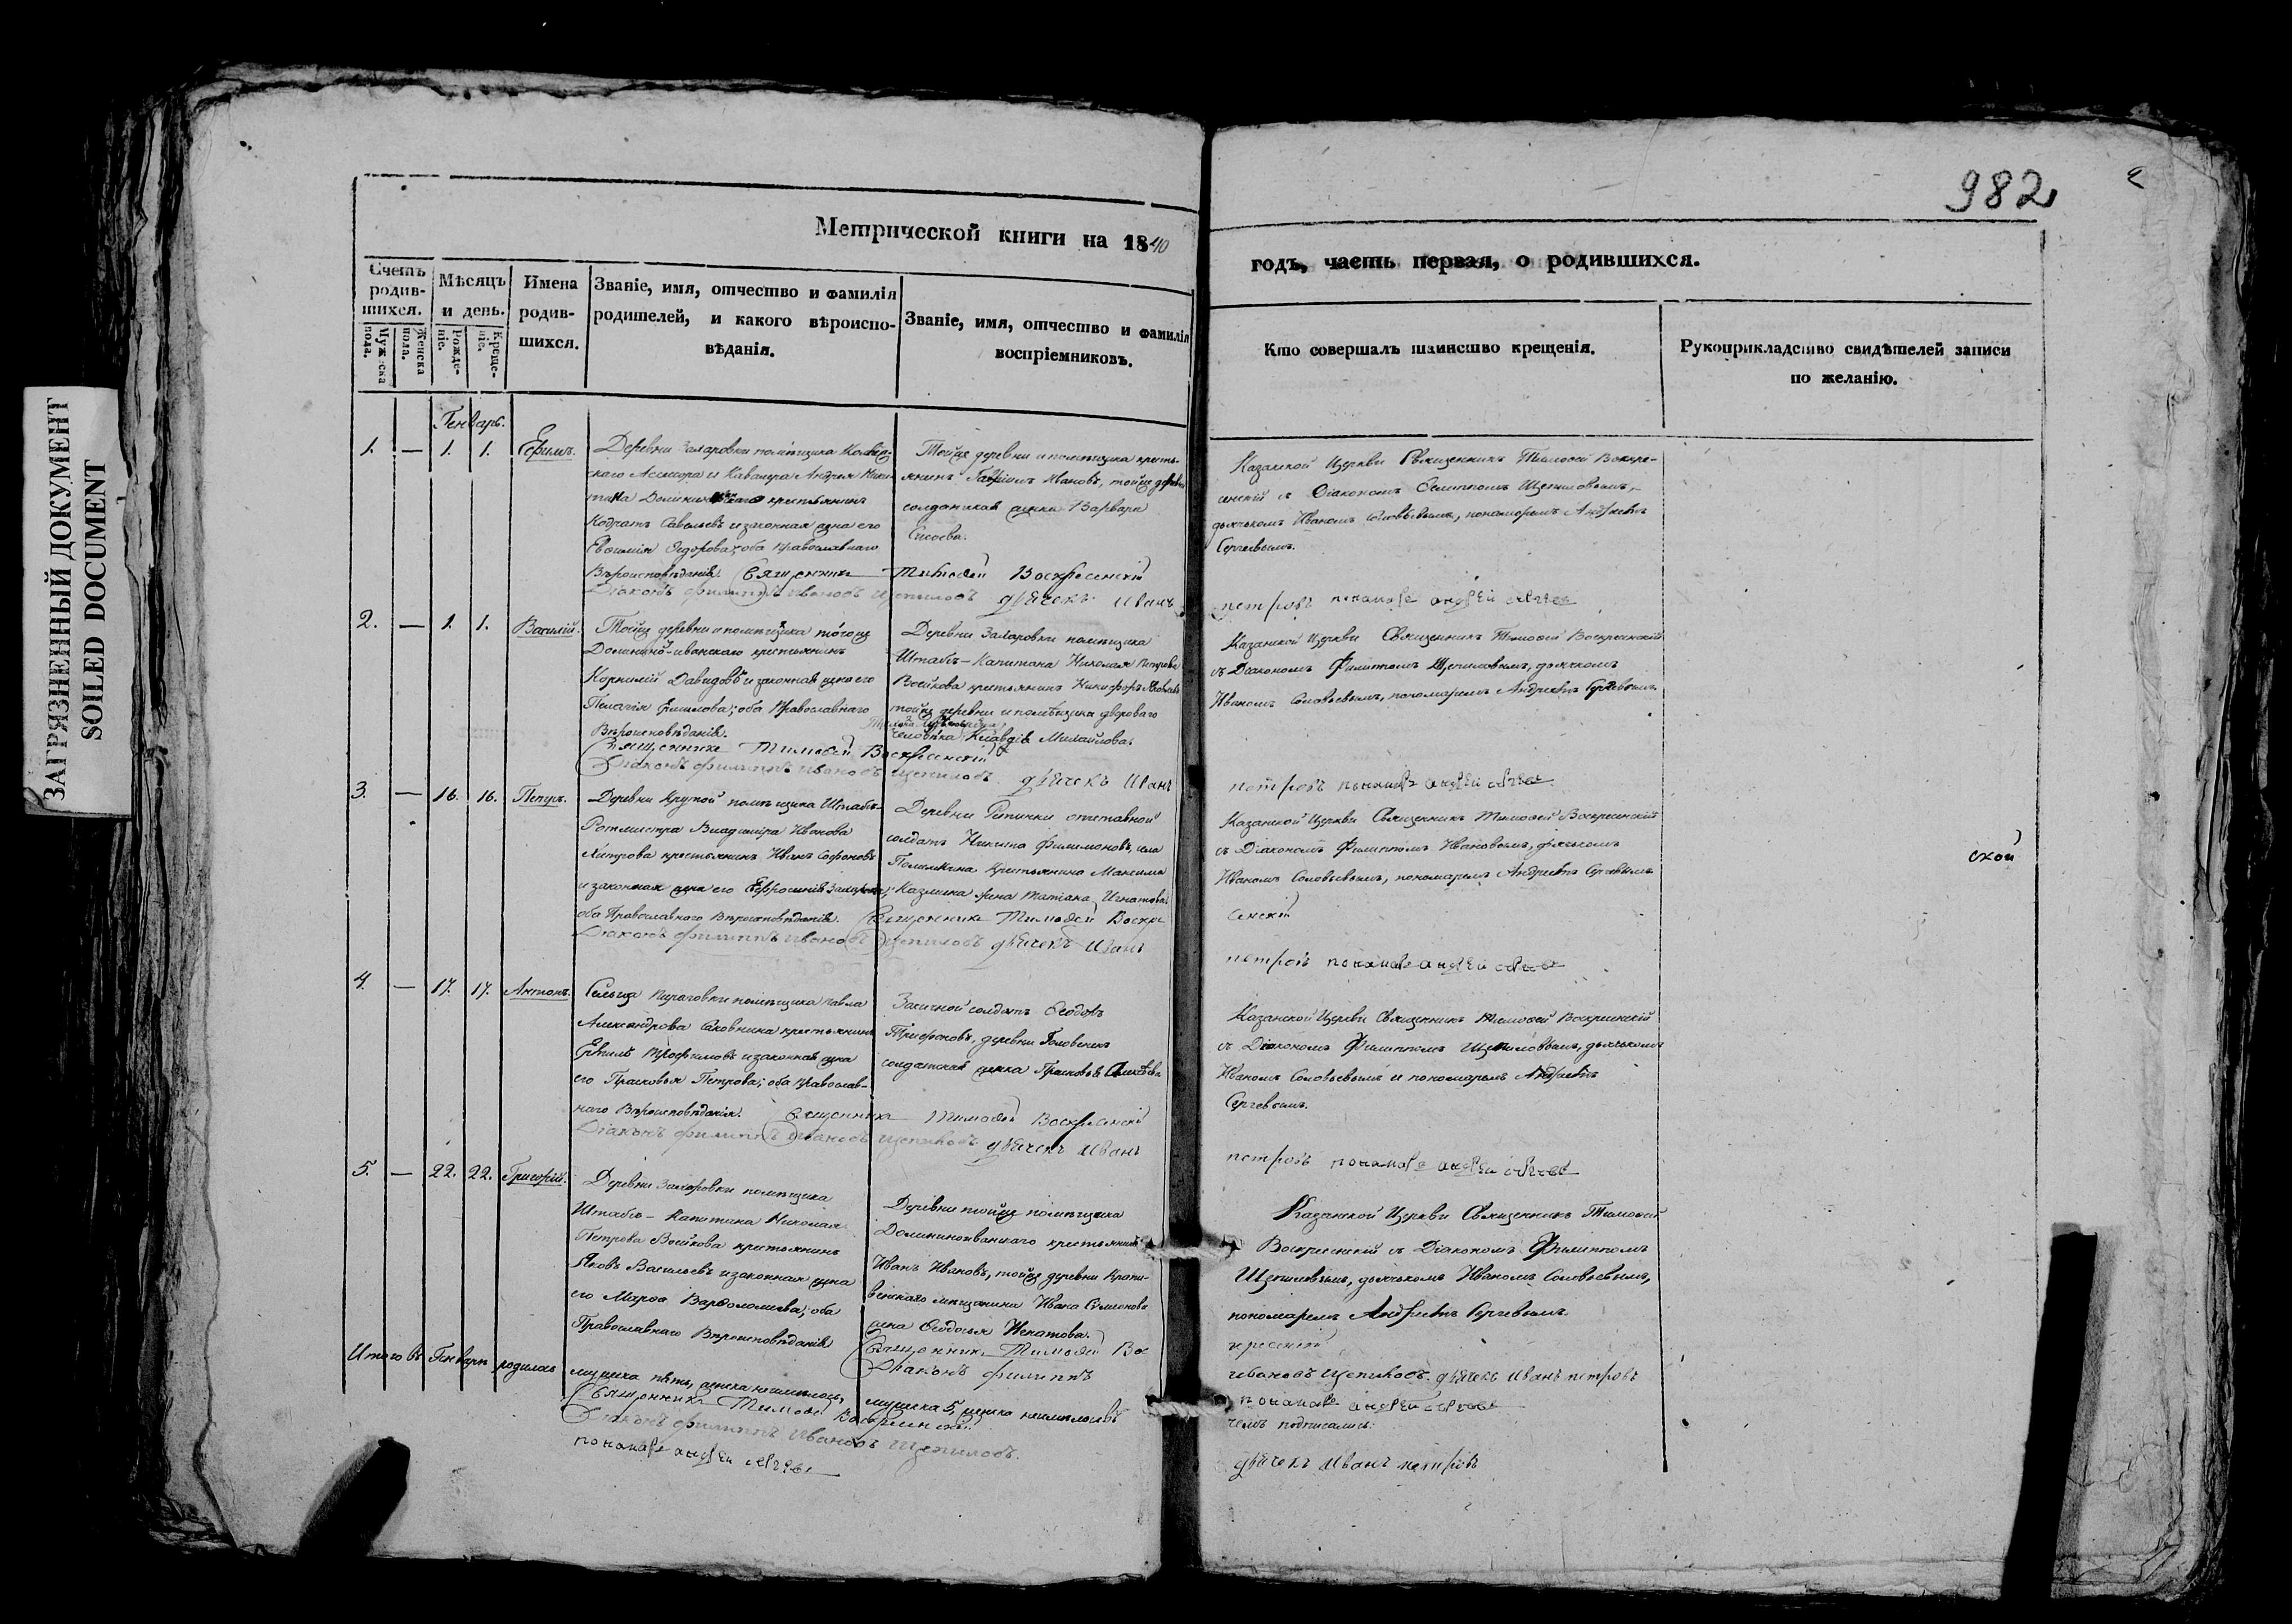 982
ЗАГРЯЗНЕННЫЙ ДОКУМЕНТ
SOILED DOCUMENT
Метрической книги на 1840
годъ, часть первая, о родившихся.
Счетъ родив-шихся.
Мужеска пола.
Женска пола.
Мѣсяцъ и день.
Рожде-ніе.
Креще-ніе.
Имена родив-шихся.
Званіе, имя, отчество и фамилія
родителей, и какого вѣроиспо-
вѣданія.
Званіе, имя, отчество и фамилія
воспріемниковъ.
Кто совершалъ таинство крещенія.
Рукоприкладство свидѣтелей записи
по желанію.
Генварь.
1. — 1. 1. Ефимъ.
Деревни Захаровки помѣщика Коллеж-
скаго Ассесора и Кавалера Андрея Ники-
тина крестьянинъ
Кодратъ Савельевъ и законная жена его
Евѳимія Ѳедорова; оба православнаго
Вѣроисповѣданія. Священникъ Тимофей Воскресенскій
Діаконъ Филиппъ Ивановъ Щепиловъ дьячекъ Иванъ
Тойже деревни и помѣщика кресть-
янинъ Гавріилъ Ивановъ, тойже деревни
солдатская жена Варвара
Казанской Церкви Священникъ Тимофей Воскре-
сенскій съ Діакономъ Филиппомъ Щепиловымъ,
дьячкомъ Иваномъ Соловьевымъ, пономаремъ Андреемъ
Сергеевымъ.
петровъ понамарь андрей
2. — 1. 1. Василій.
Тойже деревни и помѣщика тогоже
Долинино-иванскаго крестьянинъ
Корнилій Давидовъ и законная жена его
Пелагія Ефимова; оба Православнаго
Вѣроисповѣданія.
Священникъ Тимофей Воскресенскій
Діаконъ филиппъ Ивановъ Щепиловъ дьячекъ Иванъ
Деревни Захаровки помѣщика
Штабъ-Капитана Николая Петрова
Воейкова крестьянинъ Никифоръ Яковлевъ
тойже деревни и помѣщика двороваго
человѣка Клавдія Михайлова.
Казанской Церкви Священникъ Тимофей Воскресенскій
съ Діакономъ Филиппомъ Щепиловымъ, дьячкомъ
Иваномъ Соловьевымъ, пономаремъ Андреемъ Сергеевымъ.
петровъ понамарь андрей
3. — 16. 16. Петръ.
Деревни Крутой помѣщика Штабъ-
Ротмистра Владиміра Иванова
Хитрова крестьянинъ Иванъ Софоновъ
и законная жена его Евфросинія
оба Православнаго Вѣроисповѣданія. Священникъ Тимофей Воскре
Діаконъ филиппъ Ивановъ Щепиловъ дьячекъ Иванъ
Деревни отставной
солдатъ Никита Филимоновъ, села
крестьянина Максима
жена Татіана Игнатова.
Казанской Церкви Священникъ Тимофей Воскресенскій
съ Діакономъ Филиппомъ Ивановымъ, дьячкомъ
Иваномъ Соловьевымъ, пономаремъ Андреемъ Сергевымъ.
сенскій
петровъ понамарь андрей
ской
4. — 17. 17. Антонъ.
Сельца помѣщика Павла
Александрова крестьянинъ
Трофимовъ и законная жена
его Прасковья Петрова; оба православ-
наго Вѣроисповѣданія. Священникъ Тимофей Воскресенскій
Діаконъ филиппъ Ивановъ Щепиловъ дьячекъ Иванъ
солдатъ Ѳедотъ
Трифоновъ, деревни
солдатская женка Прасковья
Казанской Церкви Священникъ Тимофей Воскресенскій
съ Діакономъ Филиппомъ Щепиловымъ, дьячкомъ
Иваномъ Соловьевымъ и пономаремъ Андреемъ
Сергеевымъ.
петровъ понамарь андрей
5. — 22. 22. Григорій.
Деревни Захаровки помѣщика
Штабъ-Капитана Николая
Петрова Воейкова крестьянинъ
Яковъ Васильевъ и законная жена
его Марѳа Варѳоломеева; оба
Православнаго Вѣроисповѣданія
Деревни тойже помѣщика
Долининоиванскаго крестьянинъ
Иванъ Ивановъ, тойже деревни Крапи-
венскаго мѣщанина Ивана Симеонова
жена Ѳеодосья Игнатова.
Священникъ Тимофей Вос
Діаконъ филиппъ
Казанской Церкви Священникъ Тимофей
Воскресенскій съ Діакономъ Филиппомъ
Щепиловымъ, дьячкомъ Иваномъ Соловьевымъ,
пономаремъ Андреемъ Сергевымъ.
кресенскій
ивановъ Щепиловъ. дьячекъ Иванъ петровъ
понамарь андрей
Итого въ Генварѣ родилось
мужеска пять, женска неимѣлось,
мужеска 5 женска неимѣлось въ
чемъ подписались:
Священникъ Тимофей Воскресенскій
Діаконъ филиппъ Ивановъ Щепиловъ.
дьячекъ Иванъ петровъ
понамарь андрей